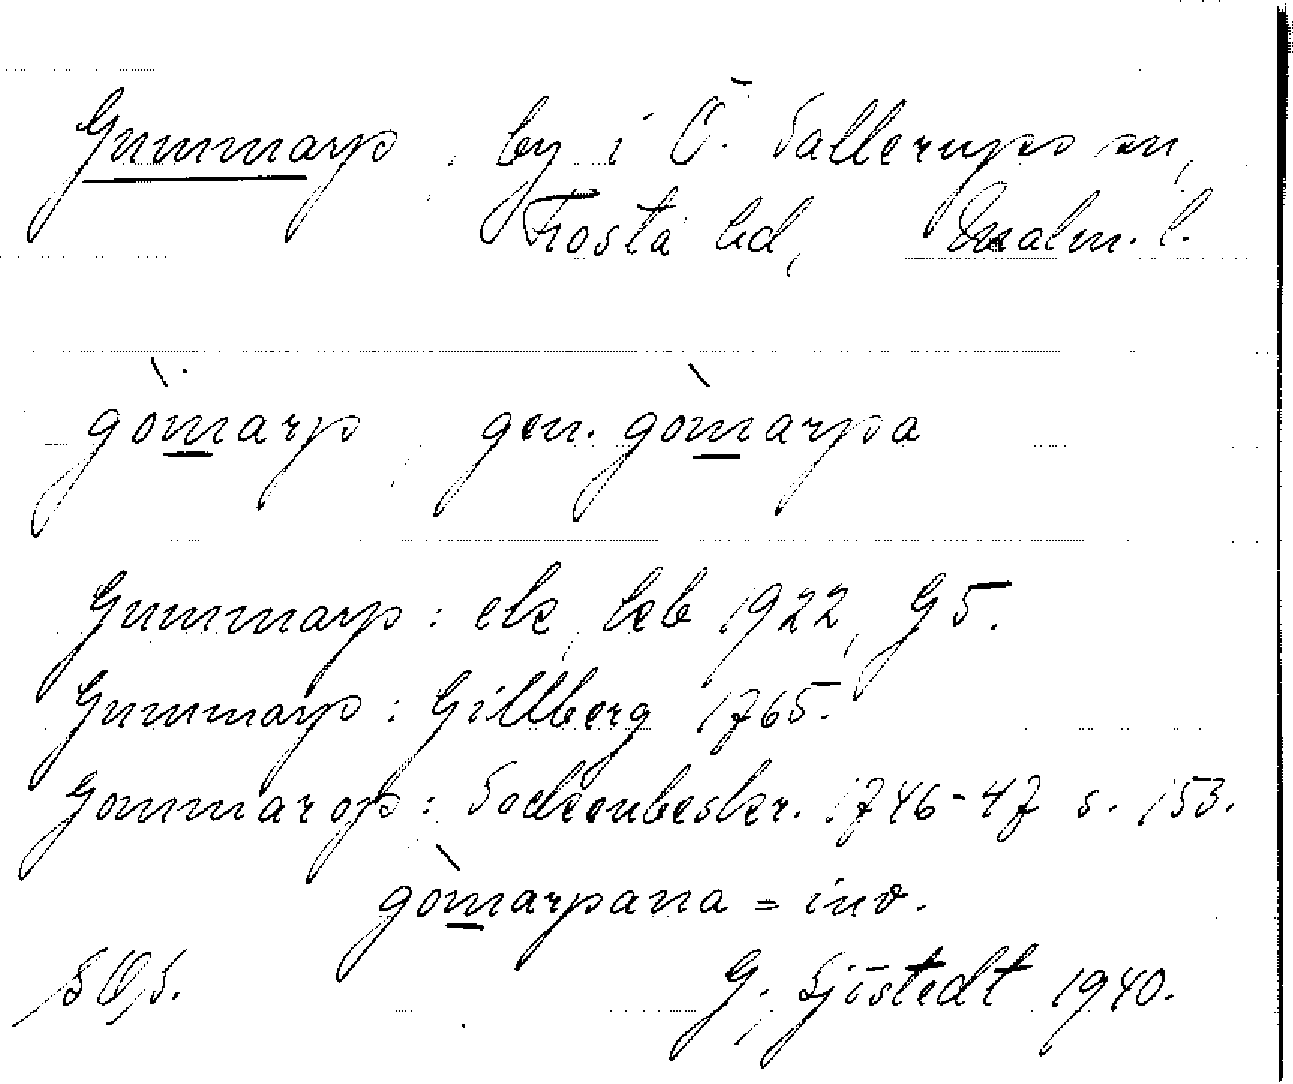 Gummarp, by i Ö. Sallerups sn,
Frosta hd, Malm. l.
gòmarp, gen. gòmarpa
Gummarp: ek kb 1922, G5.
Gummarp: Gillberg 1765.
Gommarop: Sockenbeskr. 1746-47 s. 153.
gòmarpana = inv.
G. Sjöstedt 1940.